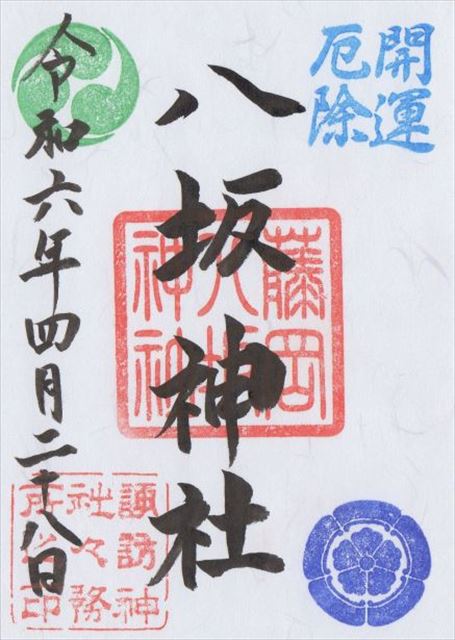 開運
厄除
八坂神社
藤岡
八坂
神社
令和六年四月二十八日
諏訪神
社々務
所之印